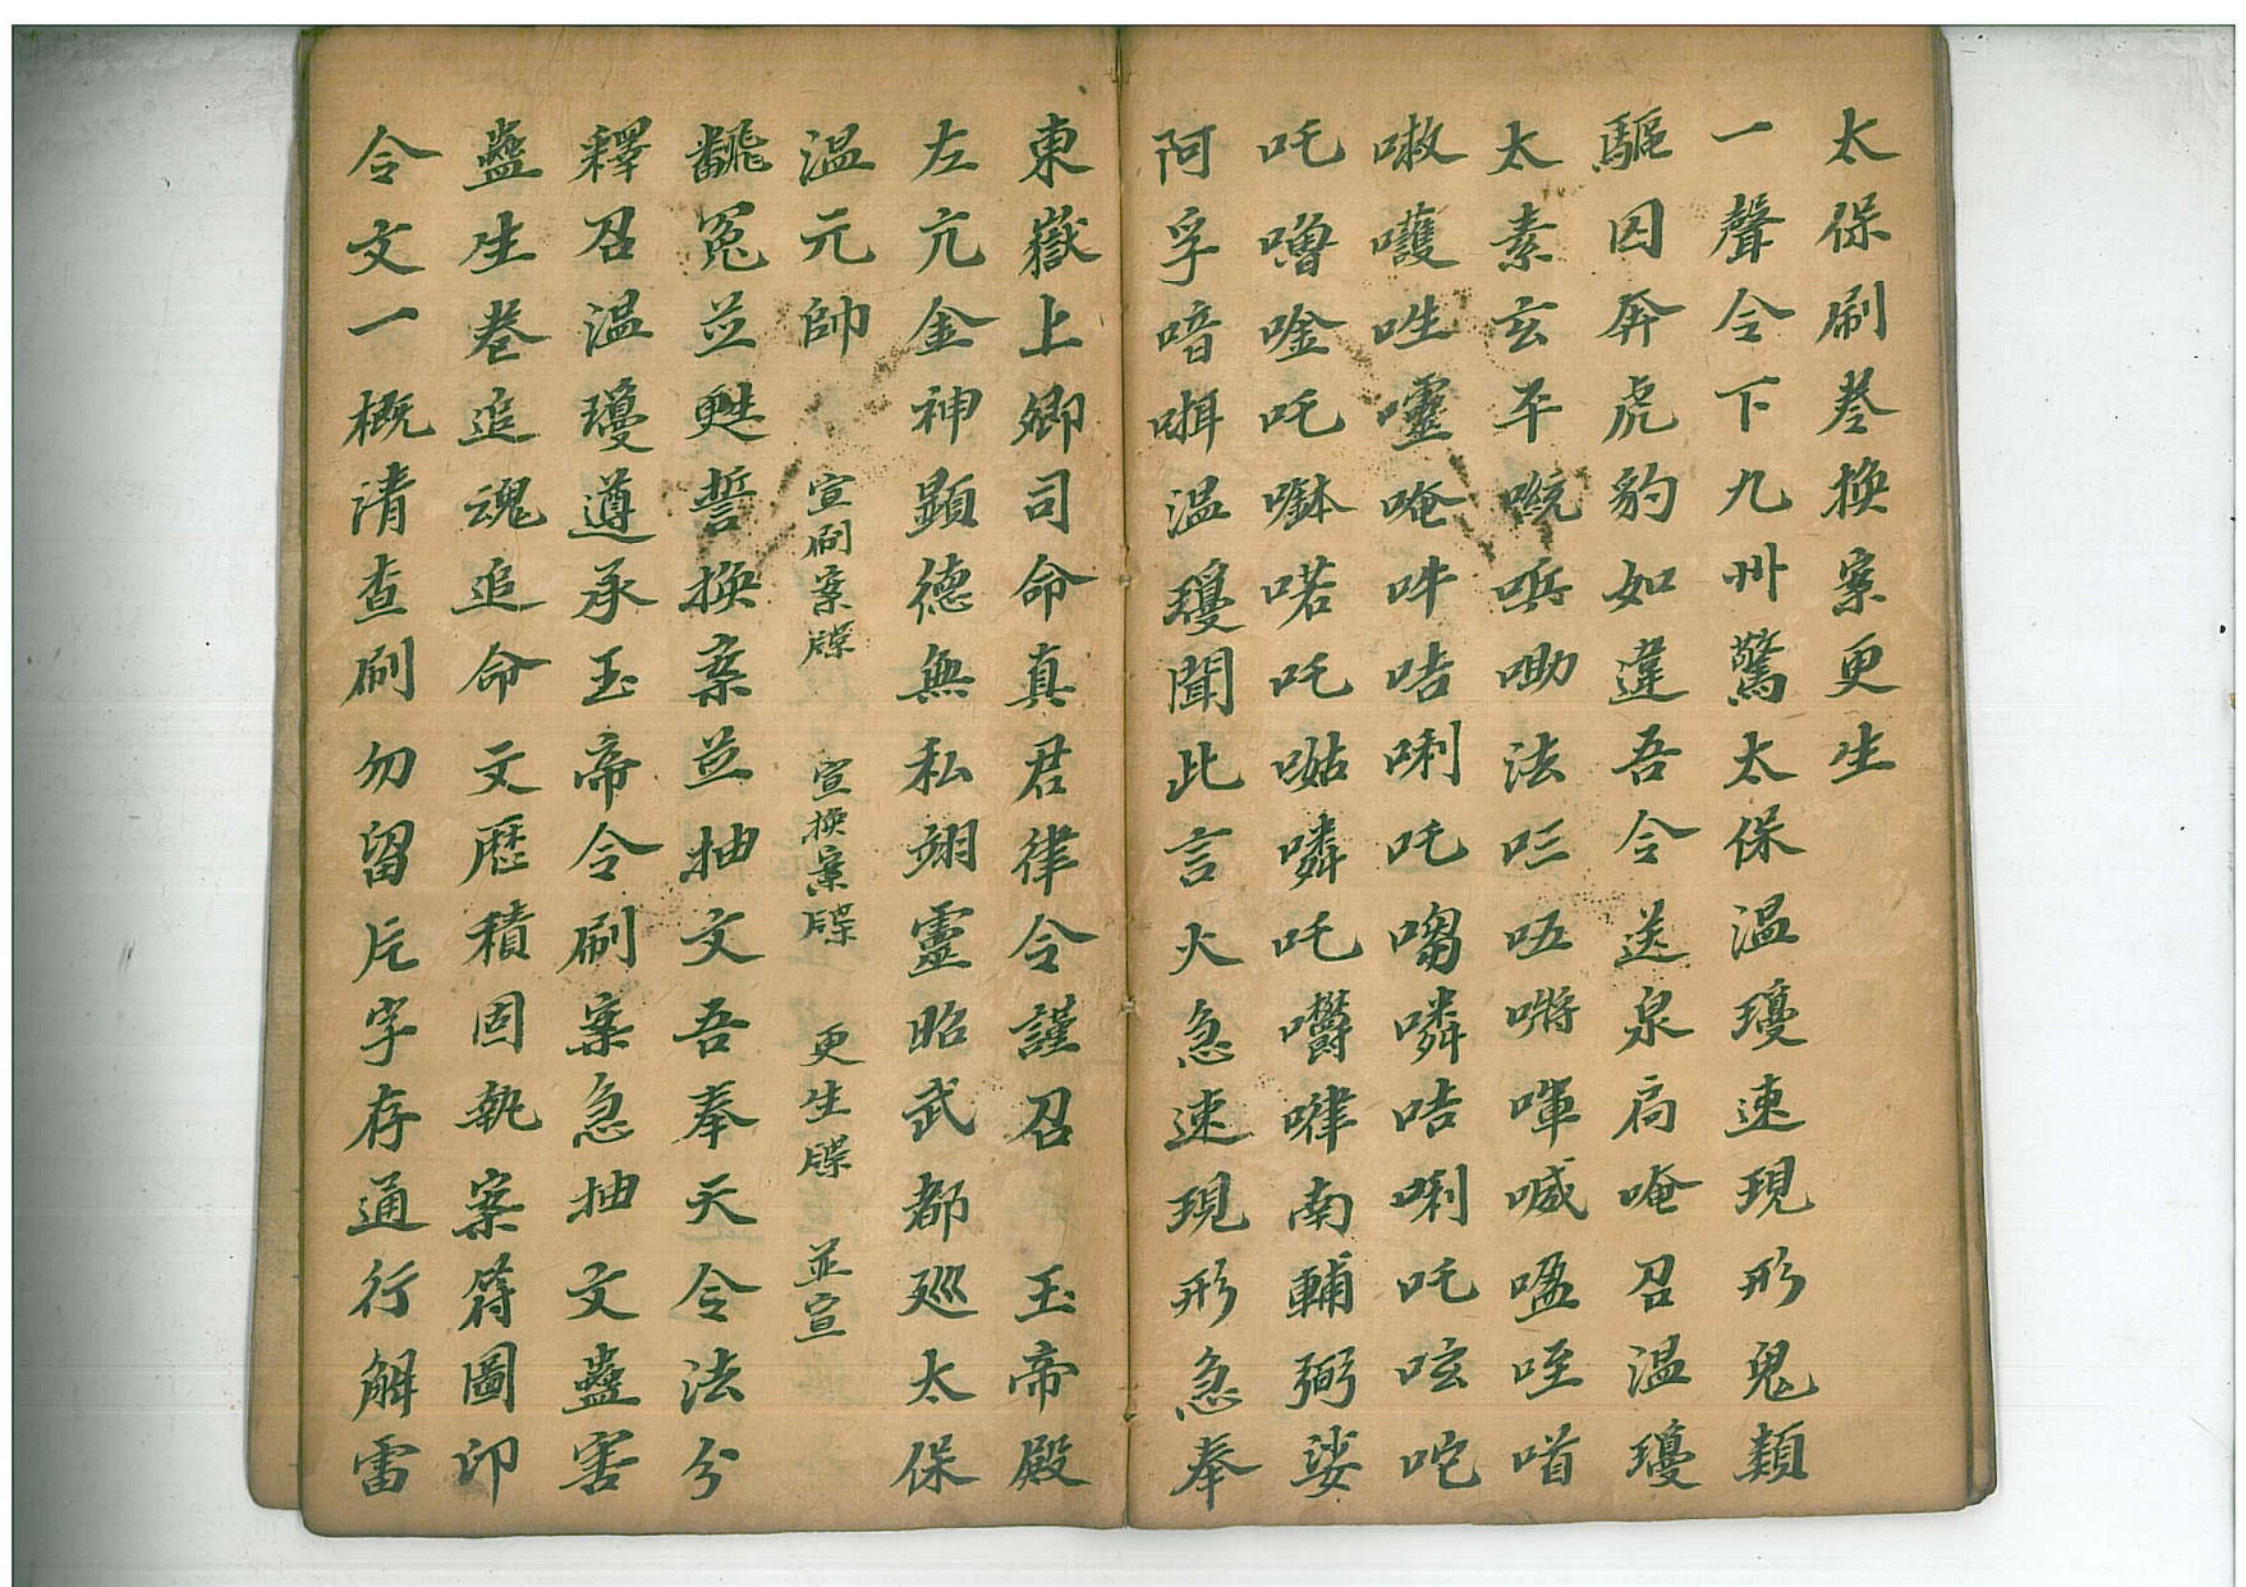 太保刷卷換案更生
一聲令下九州驚太保温瓊速現形鬼類
驅囚奔虎豹如違吾令送泉扃唵召温瓊
太素玄平嘅𠵽嘞法𠯗唔㗚喗喊𠺁咥喈
嗷嚄㕽𡅽唵吽咭唎吒㗙嘫咭唎吒呟咜
吒嚕唫吒㕷喏吒㗅嘫吒嚼嘩南輔弼娑
阿孚喑啣温瓊聞此言火急速現形急奉
東嶽上卿司命真君律令謹召 玉帝殿
左亢金神顯德無私翊靈昭武都巡太保
温元帥 宣刷案牒 宣換案牒 更生牒 並宣
飜冤並甦誓換案並抽文吾奉天令法分
釋召温瓊遵承玉帝令刷案急抽文蠱害
蠱生卷追魂追命文歷積固執案符圖印
令文一概清查刷勿留片字存通行解雷